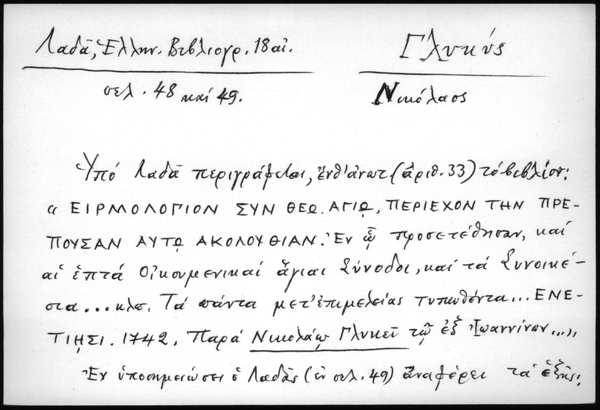 Λαδᾶ, Ἑλλην. Βιβλιογρ. 18 αἰ.
Γλυκύς
σελ. 48 καί 49.
Νικόλαος
Ὑπό Λαδᾶ περιγράφεται, ἔνθ' ἀνωτ (ἀριθ. 33) τό βιβλίον:
« ΕΙΡΜΟΛΟΓΙΟΝ ΣΥΝ ΘΕῼ ΑΓΙῼ, ΠΕΡΙΕΧΟΝ ΤΗΝ ΠΡΕ-
ΠΟΥΣΑΝ ΑΥΤῼ ΑΚΟΛΟΥΘΙΑΝ. Ἐν ᾧ προσετέθησαν, καί
αἱ ἑπτά Οἰκουμενικαί ἅγιαι Σύνοδοι, καί τά Συνοικέ-
σια... κλπ. Τά πάντα μετ' ἐπιμελείας τυπωθέντα... ΕΝΕ-
ΤΙῌΣΙ. 1742. Παρά Νικολάῳ Γλυκεῖ τῷ ἐξ Ἰωαννίνων...»,
Ἐν ὑποσημειώσει ὁ Λαδᾶς (ἐν σελ. 49) ἀναφέρει τά ἑξῆς: